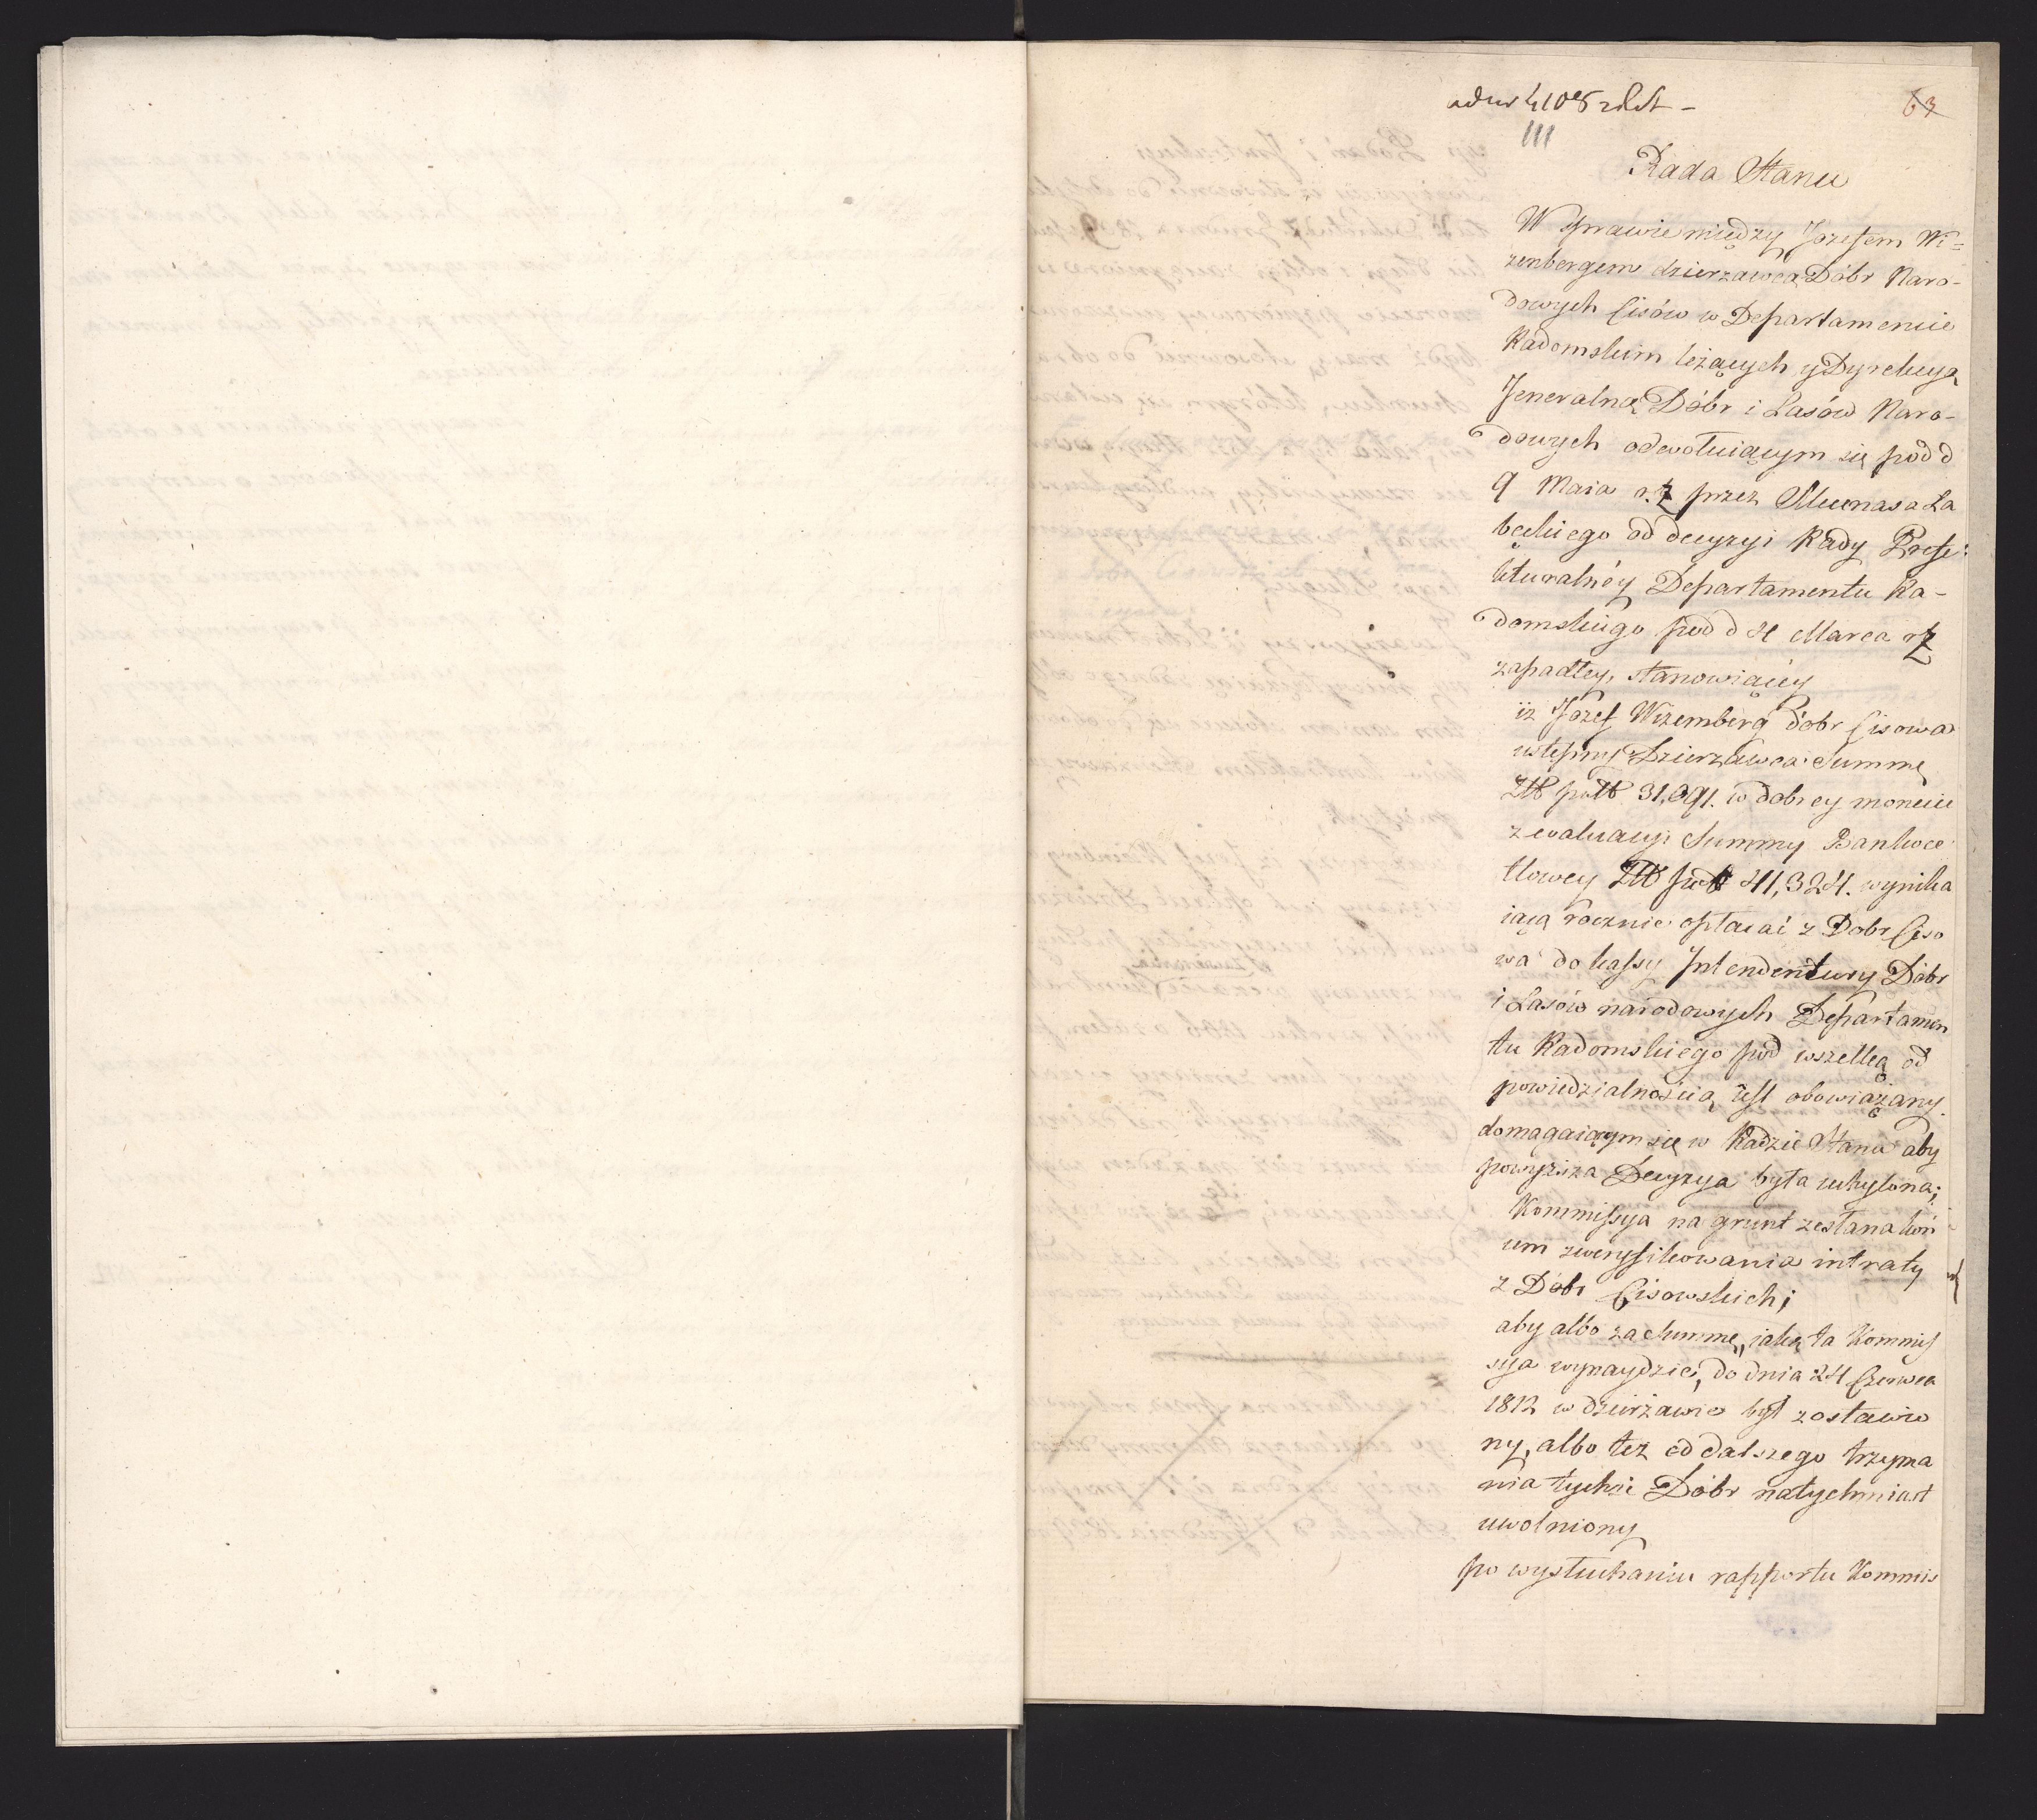 63
Rada Stanu
W sprawie między Jozefem Wi=
zenbergiem dzierzawcą Dóbr Naro-
dowych Cisów w Departamencie
Radomskim leżących y Dyrekcyą
Jeneralną Dóbr i Lasów Naro-
dowych odwołuiącym się pod d
9 Maia r. z przez Mecenasa La
beckiego od decyzyi Rady Prefe:
kturalnéy Departamentu Ra-
domskiego pod d 4 Marca r z
zapadłey, stanowiącéy
iż Jozef Wizemberg dobr Cisowa
ustępny Dzierzawca Summę
Złł pol 31,091. w dobrey monecie
z ewaluacyi Summy Bankoce
tlowey Złł pol 41,324. wynika
iącą rocznie opłacać z Dobr Ciso
wa do kassy Intendentury Dóbr
i Lasów narodowych Departamen
tu Radomskiego pod wszelką od
powiedzialnością iest obowiązany.
domagaiącym się w Radzie Stanu aby
powyższa Decyzya była uchylona;
Kommissya na grunt zesłana koń
cem zweryfikowania intraty
z Dobr Cisowskich;
aby albo za Summę, iaką ta Kommis
sya wynaydzie, do dnia 24 Czerwca
1812 w dzierżawie był zostawio
ny, albo też od dalszego trzyma
nia tychże Dóbr natychmiast
uwolniony
po wysłuchaniu rapportu Kommis